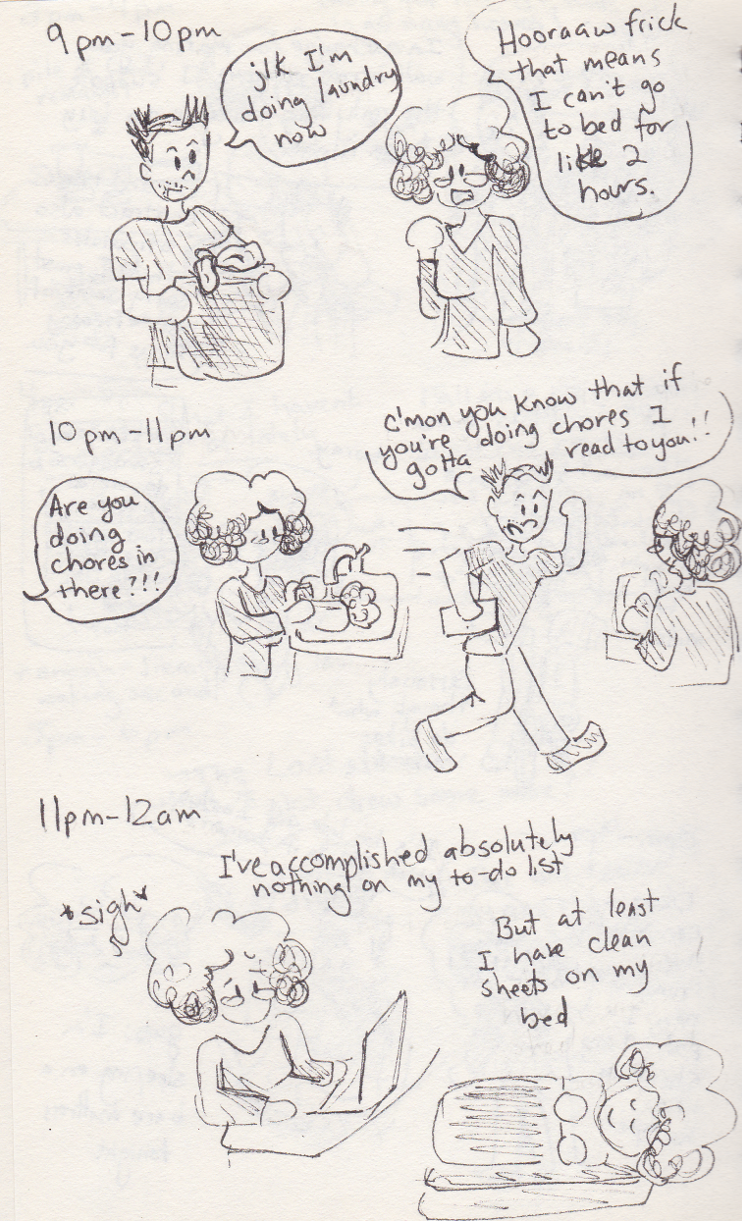 9pm-10pm
j/k I'm
doing laundry
now
Hooraaw frick
that means
I can't go
to bed for
like 2
hours.
10pm-11pm
Are you
doing
chores in
there?!!!
c'mon you know that if
you're doing chores I
gotta read to you!!
11pm-12am
*sigh*
I've accomplished absolutely
nothing on my to-do list
But at least
I have clean
sheets on my
bed